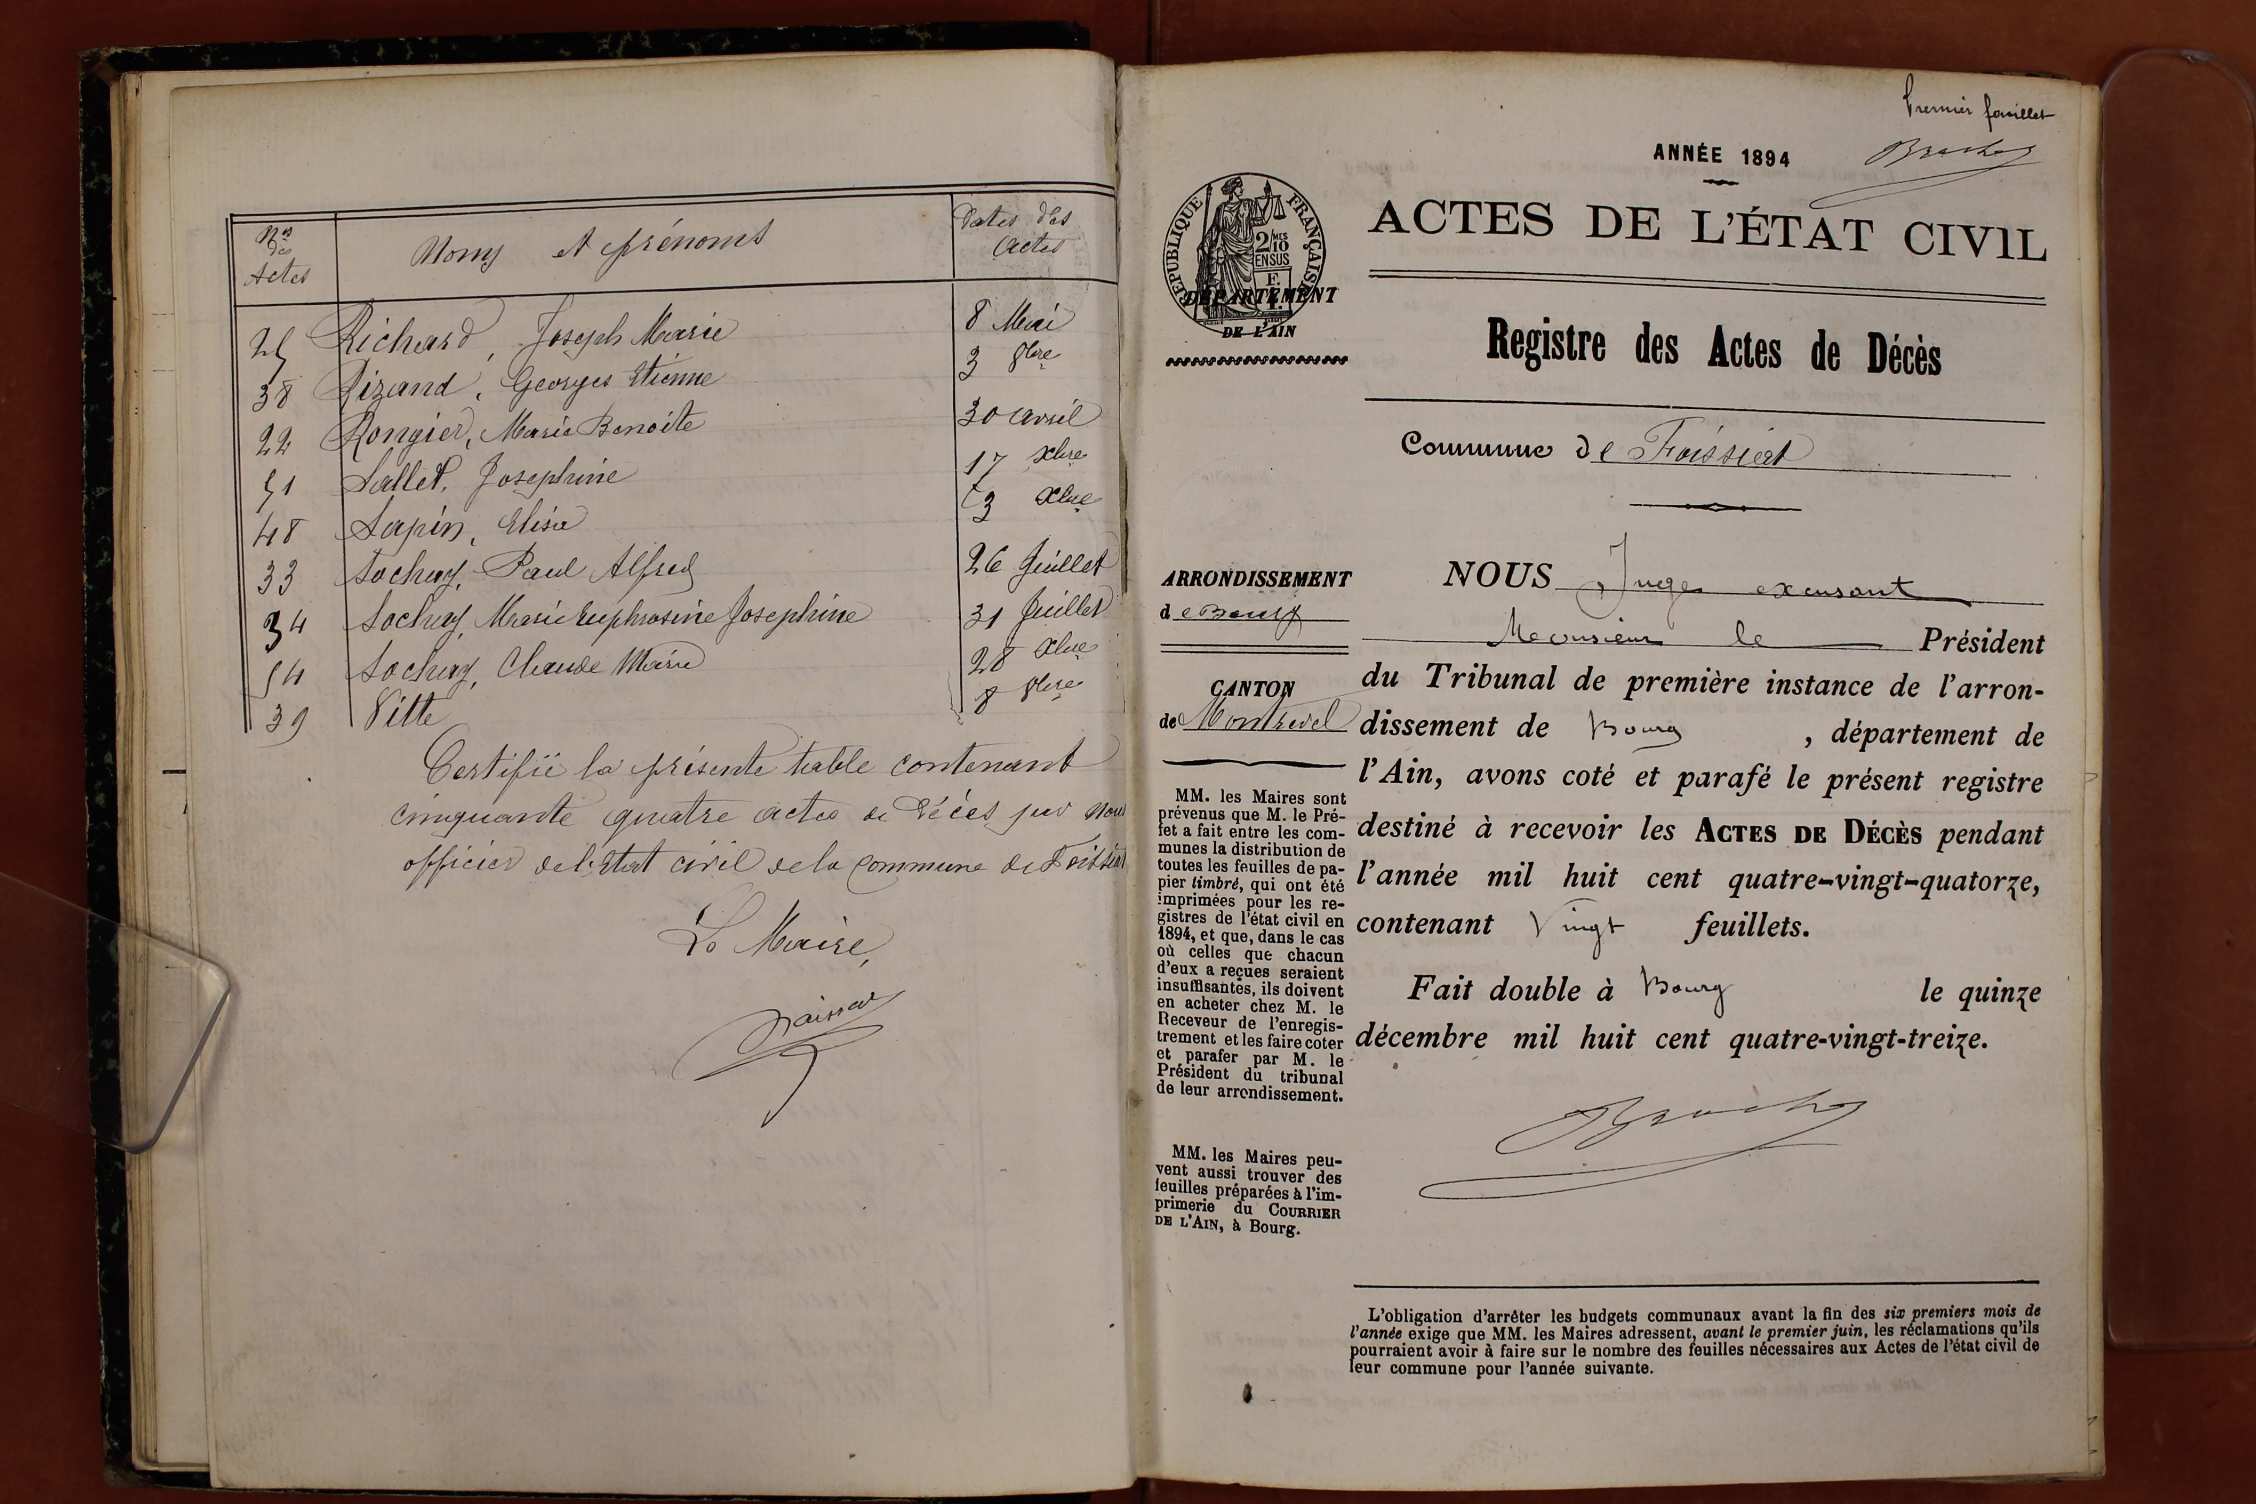 Nos des Actes
Noms et prénoms
Dates des Actes
25 Richard, Joseph Marie 8 Mai
38 Rizand, Georges Etienne 3 8bre
22 Rongier, Marie Benoite 30 avril
51 Sallet, Josephine 17 xbre
48 Sapin, Elisa 3 xbre
33 Sochay, Paul Alfred 26 Juillet
34 Sochay, Marie Euphrosine Josephine 31 Juillet
54 Sochay, Claude Marie 28 xbre
39 Vitte 8 8bre
Certifié la présente table contenant
cinquante quatre actes de décès par nous
officier de l'Etat civil de la commune de Foissiat
Le Maire,
Premier feuillet
ANNÉE 1894
RÉPUBLIQUE FRANÇAISE
2/10 MES
EN SUS
DÉPARTEMENT
DE L'AIN
ACTES DE L'ÉTAT CIVIL
Registre des Actes de Décès
Commune de Foissiat
ARRONDISSEMENT
de Bourg
CANTON
de Montrevel
MM. les Maires sont
prévenus que M. le Pré-
fet a fait entre les com-
munes la distribution de
toutes les feuilles de pa-
pier timbré, qui ont été
imprimées pour les re-
gistres de l'état civil en
1894, et que, dans le cas
où celles que chacun
d'eux a reçues seraient
insuffisantes, ils doivent
en acheter chez M. le
Receveur de l'enregis-
trement et les faire coter
et parafer par M. le
Président du tribunal
de leur arrondissement.
MM. les Maires peu-
vent aussi trouver des
feuilles préparées à l'im-
primerie du COURRIER
DE L'AIN, à Bourg.
NOUS Juge excusant
Monsieur le Président
du Tribunal de première instance de l'arron-
dissement de Bourg, département de
l'Ain, avons coté et parafé le présent registre
destiné à recevoir les ACTES DE DÉCÈS pendant
l'année mil huit cent quatre-vingt-quatorze,
contenant Vingt feuillets.
Fait double à Bourg le quinze
décembre mil huit cent quatre-vingt-treize.
L'obligation d'arrêter les budgets communaux avant la fin des six premiers mois de
l'année exige que MM. les Maires adressent, avant le premier juin, les réclamations qu'ils
pourraient avoir à faire sur le nombre des feuilles nécessaires aux Actes de l'état civil de
leur commune pour l'année suivante.